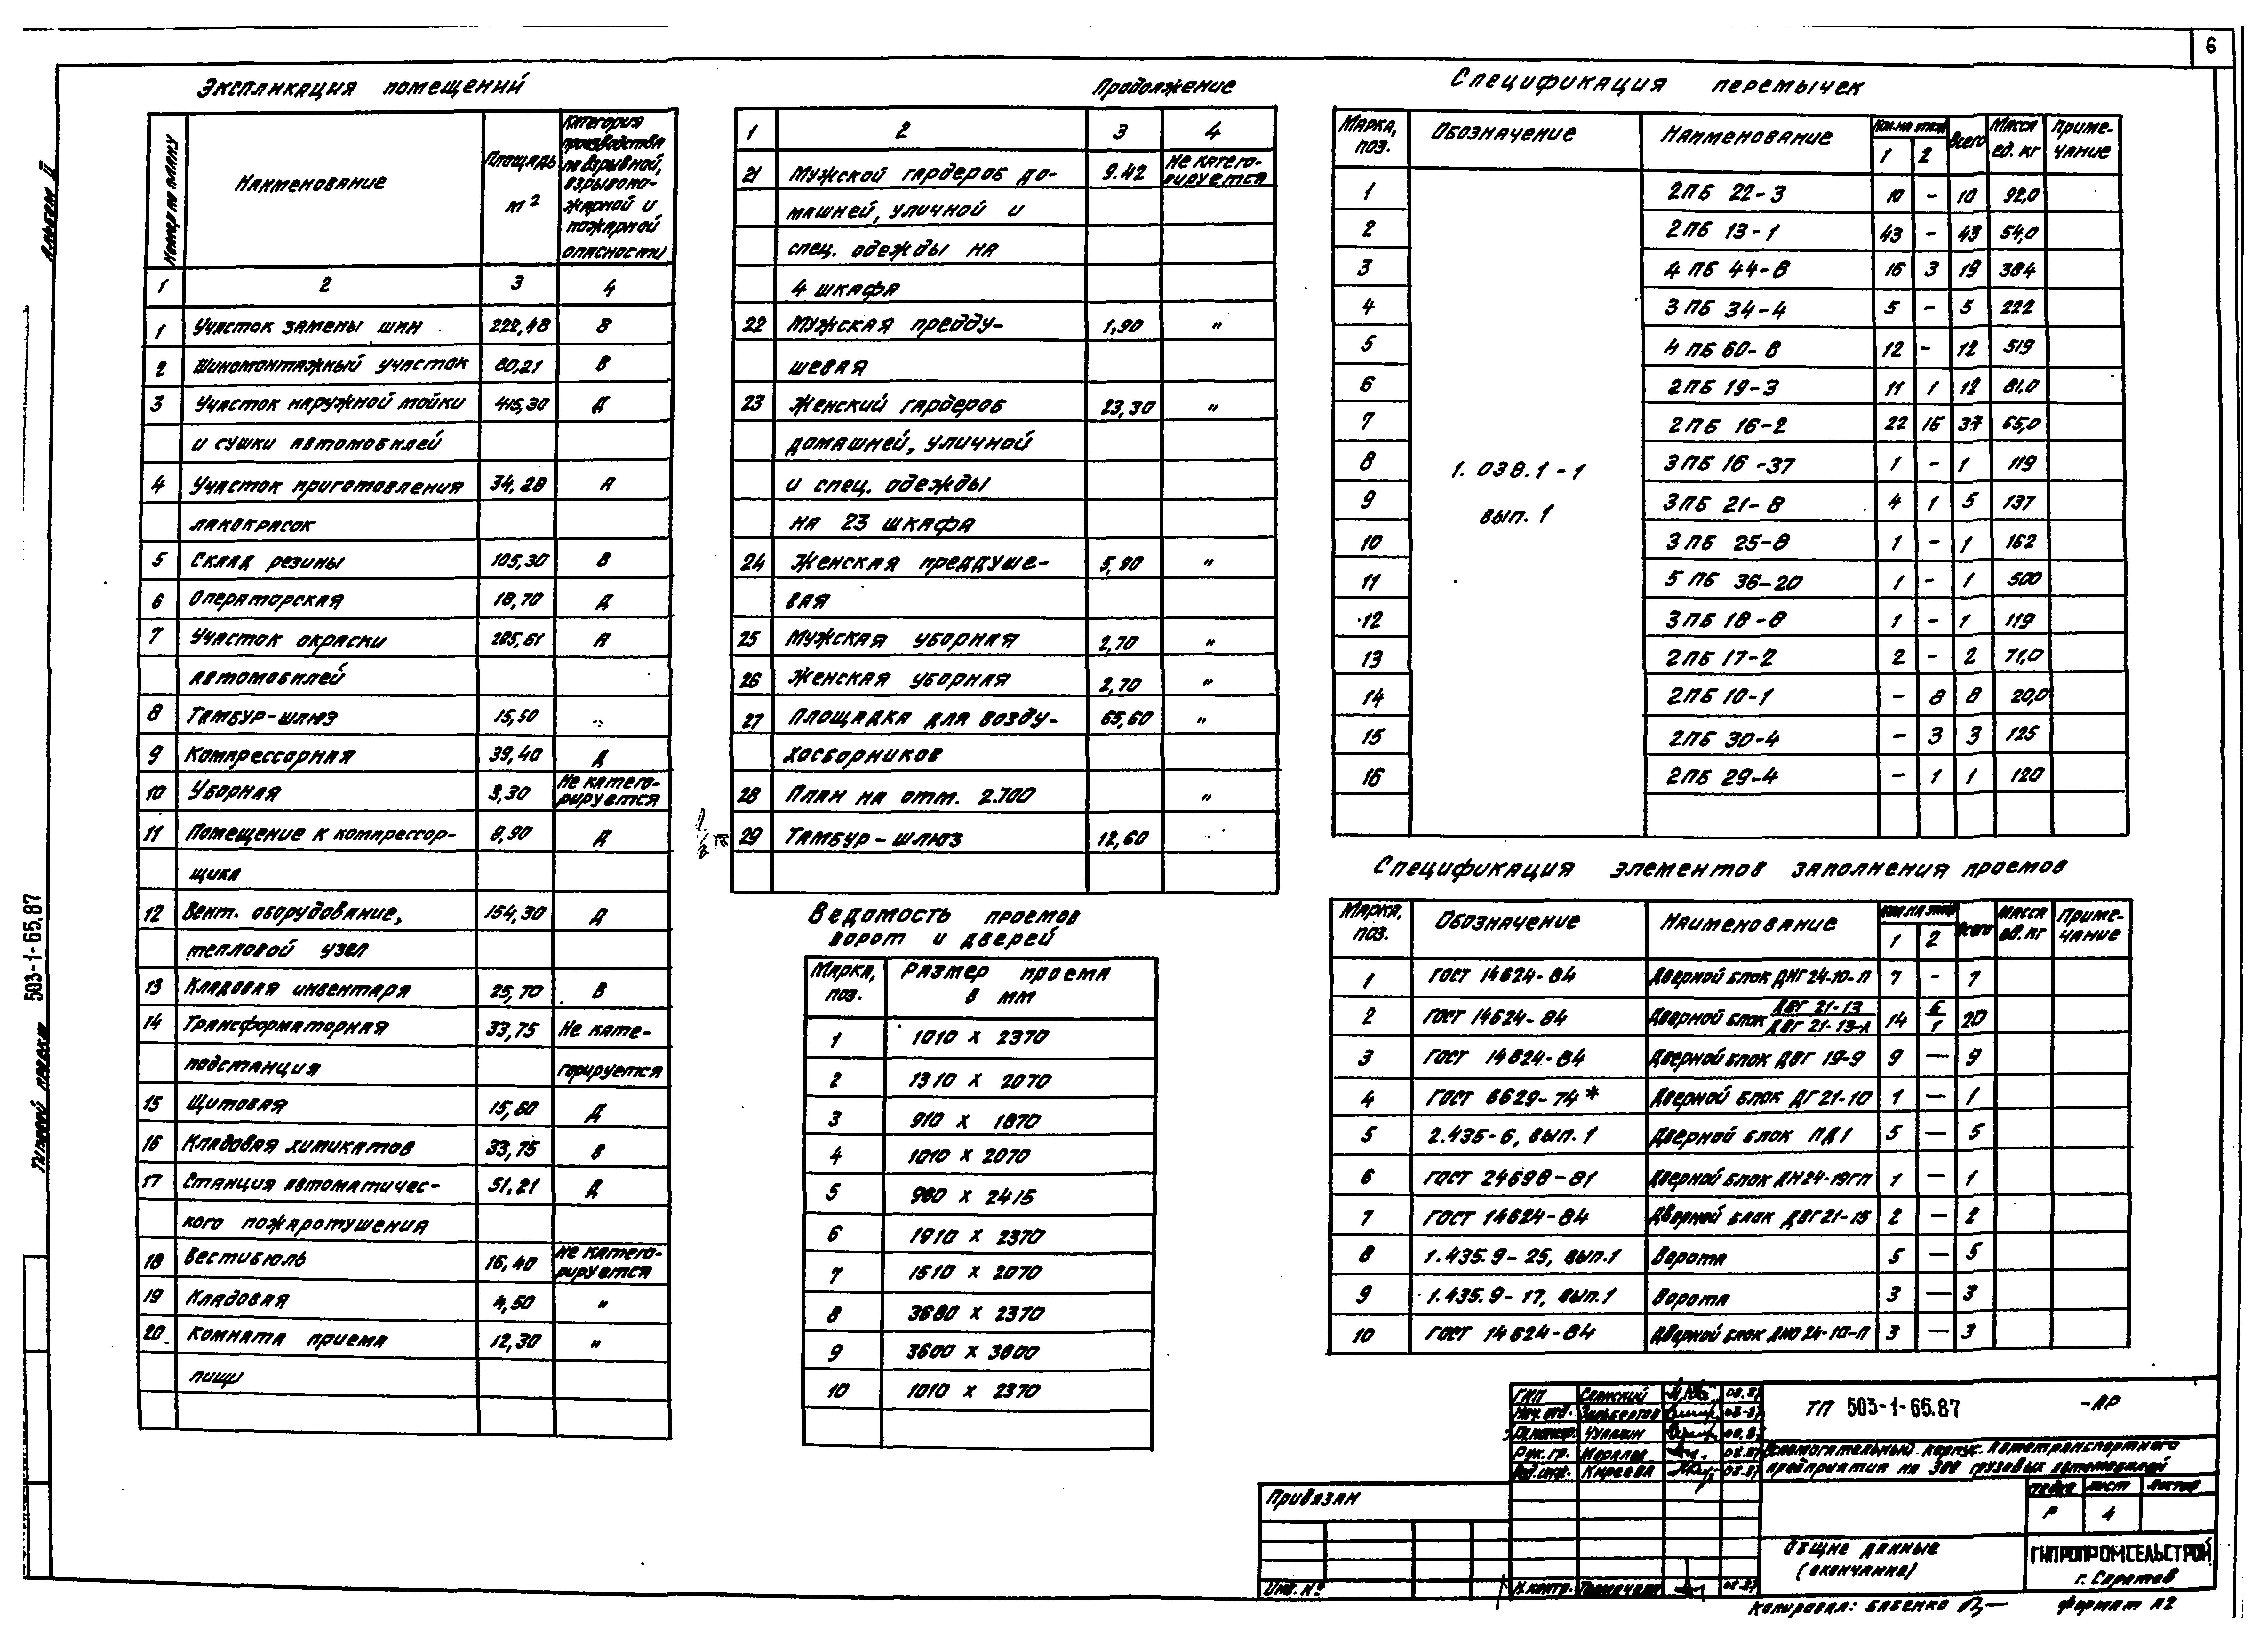 6
Альбом II
503-1-65.87
Типовой проект
Экспликация помещений
Номер по плану | Наименование | Площадь м² | Категория производства по взрывной, взрывопо-жарной и пожарной опасности
1 | 2 | 3 | 4
1 | Участок замены шин | 222,48 | В
2 | Шиномонтажный участок | 80,21 | В
3 | Участок наружной мойки | 415,30 | Д
и сушки автомобилей
4 | Участок приготовления | 34,28 | А
лакокрасок
5 | Склад резины | 105,30 | В
6 | Операторская | 18,70 | Д
7 | Участок окраски | 285,61 | А
автомобилей
8 | Тамбур-шлюз | 15,50
9 | Компрессорная | 39,40 | Д
10 | Уборная | 3,30 | Не катего-рируется
11 | Помещение к компрессор- | 8,90 | Д
щика
12 | Вент. оборудование, | 154,30 | Д
тепловой узел
13 | Кладовая инвентаря | 25,70 | В
14 | Трансформаторная | 33,75 | Не кате-
подстанция | горируется
15 | Щитовая | 15,60 | Д
16 | Кладовая химикатов | 33,75 | В
17 | Станция автоматичес- | 51,21 | Д
кого пожаротушения
18 | Вестибюль | 16,40 | Не катего-рируется
19 | Кладовая | 4,50 | "
20 | Комната приема | 12,30 | "
пищи
Продолжение
1 | 2 | 3 | 4
21 | Мужской гардероб до- | 9.42 | Не катего-рируется
машней, уличной и
спец. одежды на
4 шкафа
22 | Мужская предду- | 1,90 | "
шевая
23 | Женский гардероб | 23,30 | "
домашней, уличной
и спец. одежды
на 23 шкафа
24 | Женская преддуше- | 5,90 | "
вая
25 | Мужская уборная | 2,70 | "
26 | Женская уборная | 2,70 | "
27 | Площадка для возду- | 65,60 | "
хосборников
28 | План на отм. 2.700 | "
29 | Тамбур-шлюз | 12,60
Ведомость проемов
ворот и дверей
Марка, поз. | Размер проема в мм
1 | 1010 х 2370
2 | 1310 х 2070
3 | 910 х 1870
4 | 1010 х 2070
5 | 980 х 2415
6 | 1910 х 2370
7 | 1510 х 2070
8 | 3680 х 2370
9 | 3600 х 3600
10 | 1010 х 2370
Спецификация перемычек
Марка, поз. | Обозначение | Наименование | Кол. на этаж | Всего | Масса ед. кг | Приме-чание
1 | 2
1.038.1-1
вып. 1
1 | 2ПБ 22-3 | 10 | - | 10 | 92,0
2 | 2ПБ 13-1 | 43 | - | 43 | 54,0
3 | 4 ПБ 44-8 | 16 | 3 | 19 | 384
4 | 3 ПБ 34-4 | 5 | - | 5 | 222
5 | 4 ПБ 60-8 | 12 | - | 12 | 519
6 | 2ПБ 19-3 | 11 | 1 | 12 | 81,0
7 | 2ПБ 16-2 | 22 | 15 | 37 | 65,0
8 | 3ПБ 16-37 | 1 | - | 1 | 119
9 | 3ПБ 21-8 | 4 | 1 | 5 | 137
10 | 3 ПБ 25-8 | 1 | - | 1 | 162
11 | 5 ПБ 36-20 | 1 | - | 1 | 500
12 | 3ПБ 18-8 | 1 | - | 1 | 119
13 | 2ПБ 17-2 | 2 | - | 2 | 71,0
14 | 2ПБ 10-1 | - | 8 | 8 | 20,0
15 | 2ПБ 30-4 | - | 3 | 3 | 125
16 | 2ПБ 29-4 | - | 1 | 1 | 120
Спецификация элементов заполнения проемов
Марка, поз. | Обозначение | Наименование | Кол. на этаж | Всего | Масса ед. кг | Приме-чание
1 | 2
1 | ГОСТ 14624-84 | Дверной блок ДНГ 24-10-П | 7 | - | 7
2 | ГОСТ 14624-84 | Дверной блок ДВГ 21-13 / ДВГ 21-13-Л | 14 | 6 / 1 | 20
3 | ГОСТ 14624-84 | Дверной блок ДВГ 19-9 | 9 | — | 9
4 | ГОСТ 6629-74* | Дверной блок ДГ 21-10 | 1 | — | 1
5 | 2.435-6, вып. 1 | Дверной блок ПД1 | 5 | — | 5
6 | ГОСТ 24698-81 | Дверной блок ДН24-19ГП | 1 | — | 1
7 | ГОСТ 14624-84 | Дверной блок ДВГ21-15 | 2 | — | 2
8 | 1.435.9-25, вып.1 | Ворота | 5 | — | 5
9 | 1.435.9-17, вып.1 | Ворота | 3 | — | 3
10 | ГОСТ 14624-84 | Дверной блок ДНО 24-10-П | 3 | — | 3
Привязан
Инв. №
ГИП | Слонский | 08.87
Нач. отд. | Зильбертов | 08-87
Гл. констр. | Чулашин
Рук. гр. | Морялов | 08.87
Вед. инж. | Киреева | 08.87
Н. контр. | 08.87
ТП 503-1-65.87 -АР
Вспомогательный корпус автотранспортного
предприятия на 300 грузовых автомобилей
Стадия | Лист | Листов
Р | 4
Общие данные
(окончание)
ГИПРОПРОМСЕЛЬСТРОЙ
г. Саратов
Копировал: Бабенко
Формат А2